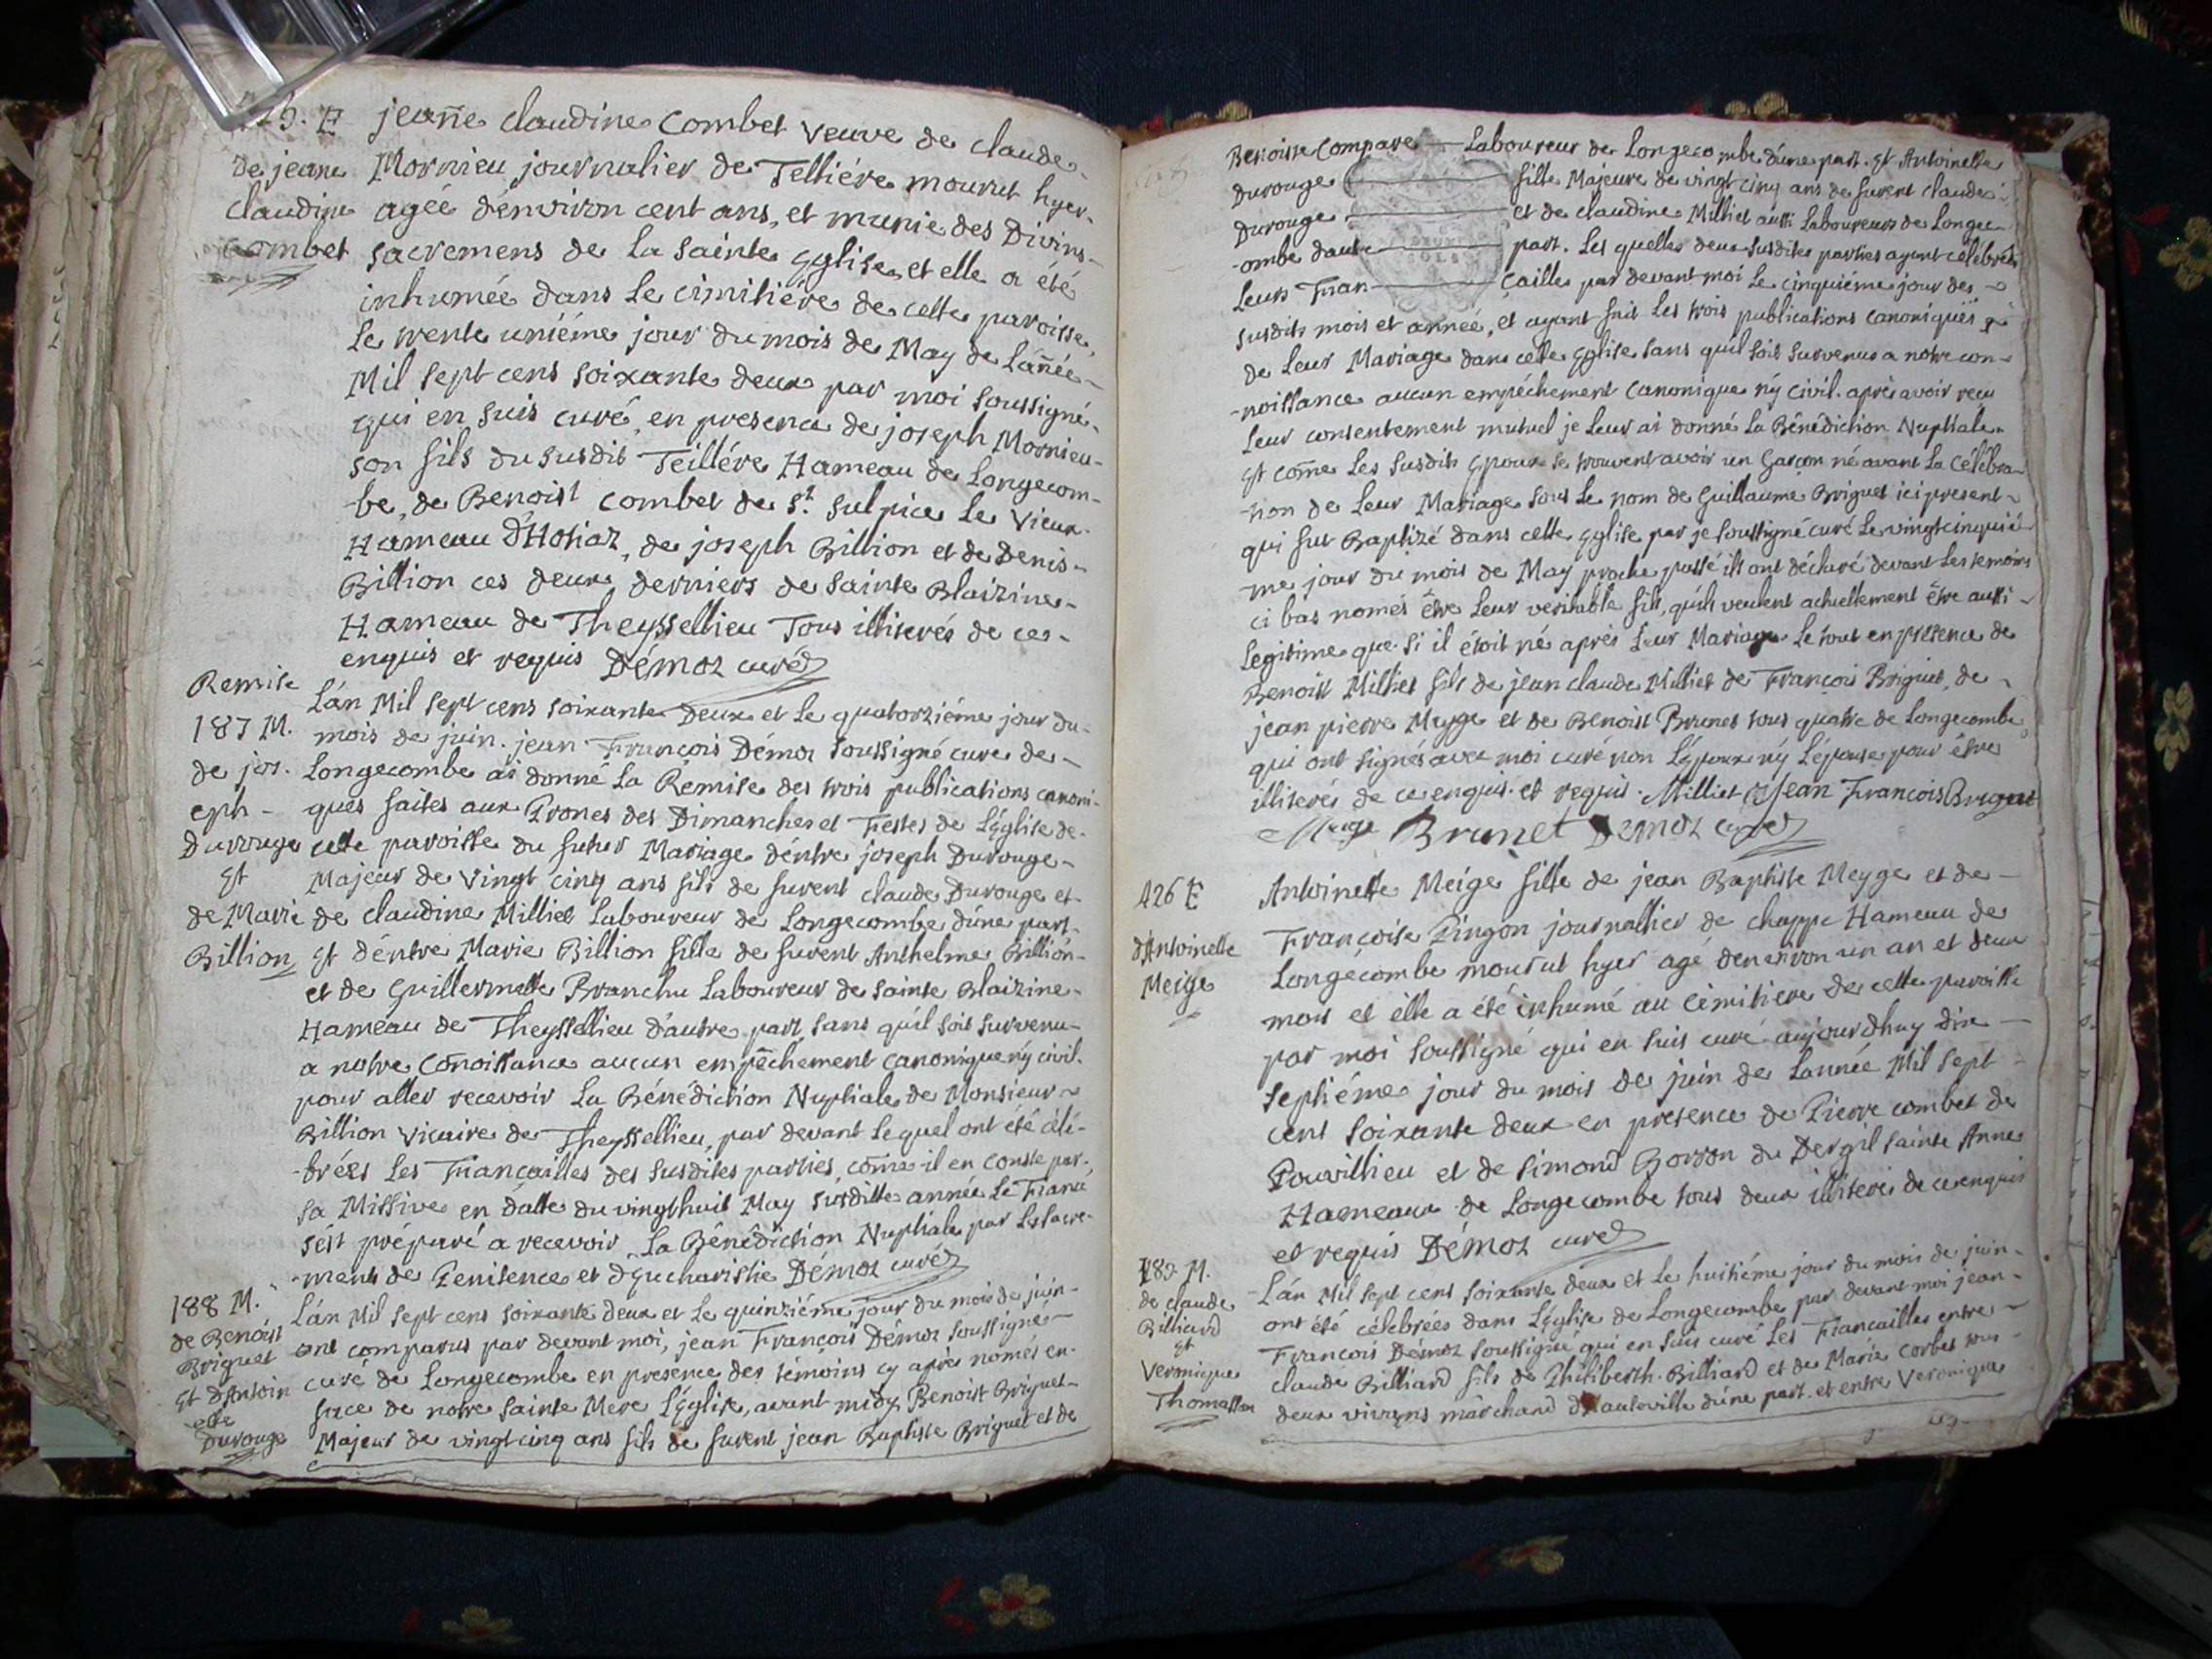 425. E
de jeane
claudine
combet
jeanne claudine Combet veuve de claude
Mornieu journalier de Telliére mourut hyer
agée d'environ cent ans, et munie des Divins
sacremens de La Sainte Eglise, et elle a été
inhumée dans Le cimitiére de cette paroisse,
Le trente uniéme jour du mois de May de L'añée
Mil sept cens soixante deux par moi soussigné
qui en suis curé, en presence de joseph Mornieu
son fils du susdit Teillére Hameau de Longecom-
-be, de Benoist combet de St. Sulpice Le Vieux
Hameau d'Hotiaz, de joseph Billion et de Denis
Billion ces deux derniers de Sainte Blaizine
Hameau de Theyssellieu Tous illiterés de ce
enquis et requis Démoz curé
Remise
187 M.
de jos.
eph -
Durouge
Et
de Marie
Billion
L'án Mil sept cens soixante Deux et Le quatorziéme jour du
mois de juin. jean François Démoz soussigné curé de
Longecombe ai donné La Remise des trois publications canoni-
ques faites aux Prones des Dimanches et Festes de L'Eglise de
cette paroisse du futur Mariage d'entre joseph Durouge
Majeur de Vingt cinq ans fils de furent claude Durouge et
de claudine Milliet Laboureur de Longecombe d'une part
Et d'entre Marie Billion fille de furent Anthelme Billion
et de Guillermette Branchu Laboureur de Sainte Blaizine
Hameau de Theyssellieu d'autre part, sans qu'il soit survenu
a notre conoissance aucun empêchement canonique ny civil.
pour aller recevoir La Bénédiction Nuptiale de Monsieur
Billion Vicaire de Theyssellieu, par devant Lequel ont été célé-
-brées Les Fiançailles des susdites parties, come il en conste par
sa Missive en datte du vingthuit May susditte année Le Fiancé
s'est préparé a recevoir La Bénédiction Nuptiale par Les sacre-
-mens de Penitence et d'Eucharistie Démoz curé
188 M.
de Benoist
Briguet
Et d'Antoin
ette
Durouge
L'án Mil sept cens soixante deux et Le quinziéme jour du mois de juin
ont comparus par devant moi, jean François Démoz soussigné
curé de Longecombe en presence des témoins cy aprés només en
face de notre sainte Mere L'Eglise, avant midy Benoist Briguet
Majeur de vingt cinq ans fils de furent jean Baptiste Briguet et de
Benoiste Compare — Laboureur de Longecombe d'une part. Et Antoinette
Durouge fille Majeure de vingt cinq ans de furent claude
Durouge et de claudine Milliet aussi Laboureurs de Longec-
-ombe d'autre part. Les quelles deux susdites parties ayant célébrés
Leurs Fian çailles par devant moi Le cinquiéme jour des
susdits mois et année, et ayant fait Les trois publications canoniques
de Leur Mariage dans cette Eglise sans qu'il soit survenus a notre con-
-noissance aucun empéchement canonique ny civil. aprés avoir recu
Leur consentement mutuel je Leur ai donné La Bénédiction Nuptiale
Et come Les susdits Epoux se trouvent avoir un Garçon né avant La célébra-
-tion de Leur Mariage sous Le nom de Guillaume Briguet ici present
qui fut Baptizé dans cette Eglise par je soussigné curé Le vingtcinquié
me jour du mois de May proche passé ils ont déclaré devant Les temoins
ci bas només être Leur veritable fils, qu'ils veulent actuellement être aussi
Legitime que si il étoit né aprés Leur Mariage Le tout en présence de
Benoist Milliet fils de jean claude Milliet de François Briguet, de
jean pierre Meyge et de Benoist Brunet tous quatre de Longecombe
qui ont signés avec moi curé non L'époux ny L'épouse pour étre
illiterés de ce enquis et requis. Milliet Jean Francois Briguet
Meige Brunet Démoz curé
426 E
d'Antoinette
Meige
Antoinette Meige fille de jean Baptiste Meyge et de
Françoise Pingon journallier de chappe Hameau de
Longécombe mourut hyer agé denviron un an et deux
mois et elle a été inhumé au Cimitiere de cette paroisse
par moi soussigné qui en suis curé aujourdhuy dix
septiéme jour du mois de juin de Lannée Mil sept
cent soixante deux en presence de Pierre combet de
Pouvillieu et de Simond Borron du Dergil sainte Anne
Hameaux de Longecombe tous deux illiterés de ce enquis
et requis Démoz curé
189 M.
de claude
Billiard
Et
Veronique
Thomasson
L'án Mil sept cent soixante deux et Le huitiéme jour du mois de juin
ont été célebrées dans L'église de Longecombe par devant moi jean
François Démoz soussigné qui en suis curé Les Fiancailles entre
claude Billiard fils de Philiberth Billiard et de Marie Corbet tous
deux vivans marchand d'hauteville d'une part. et entre Veronique